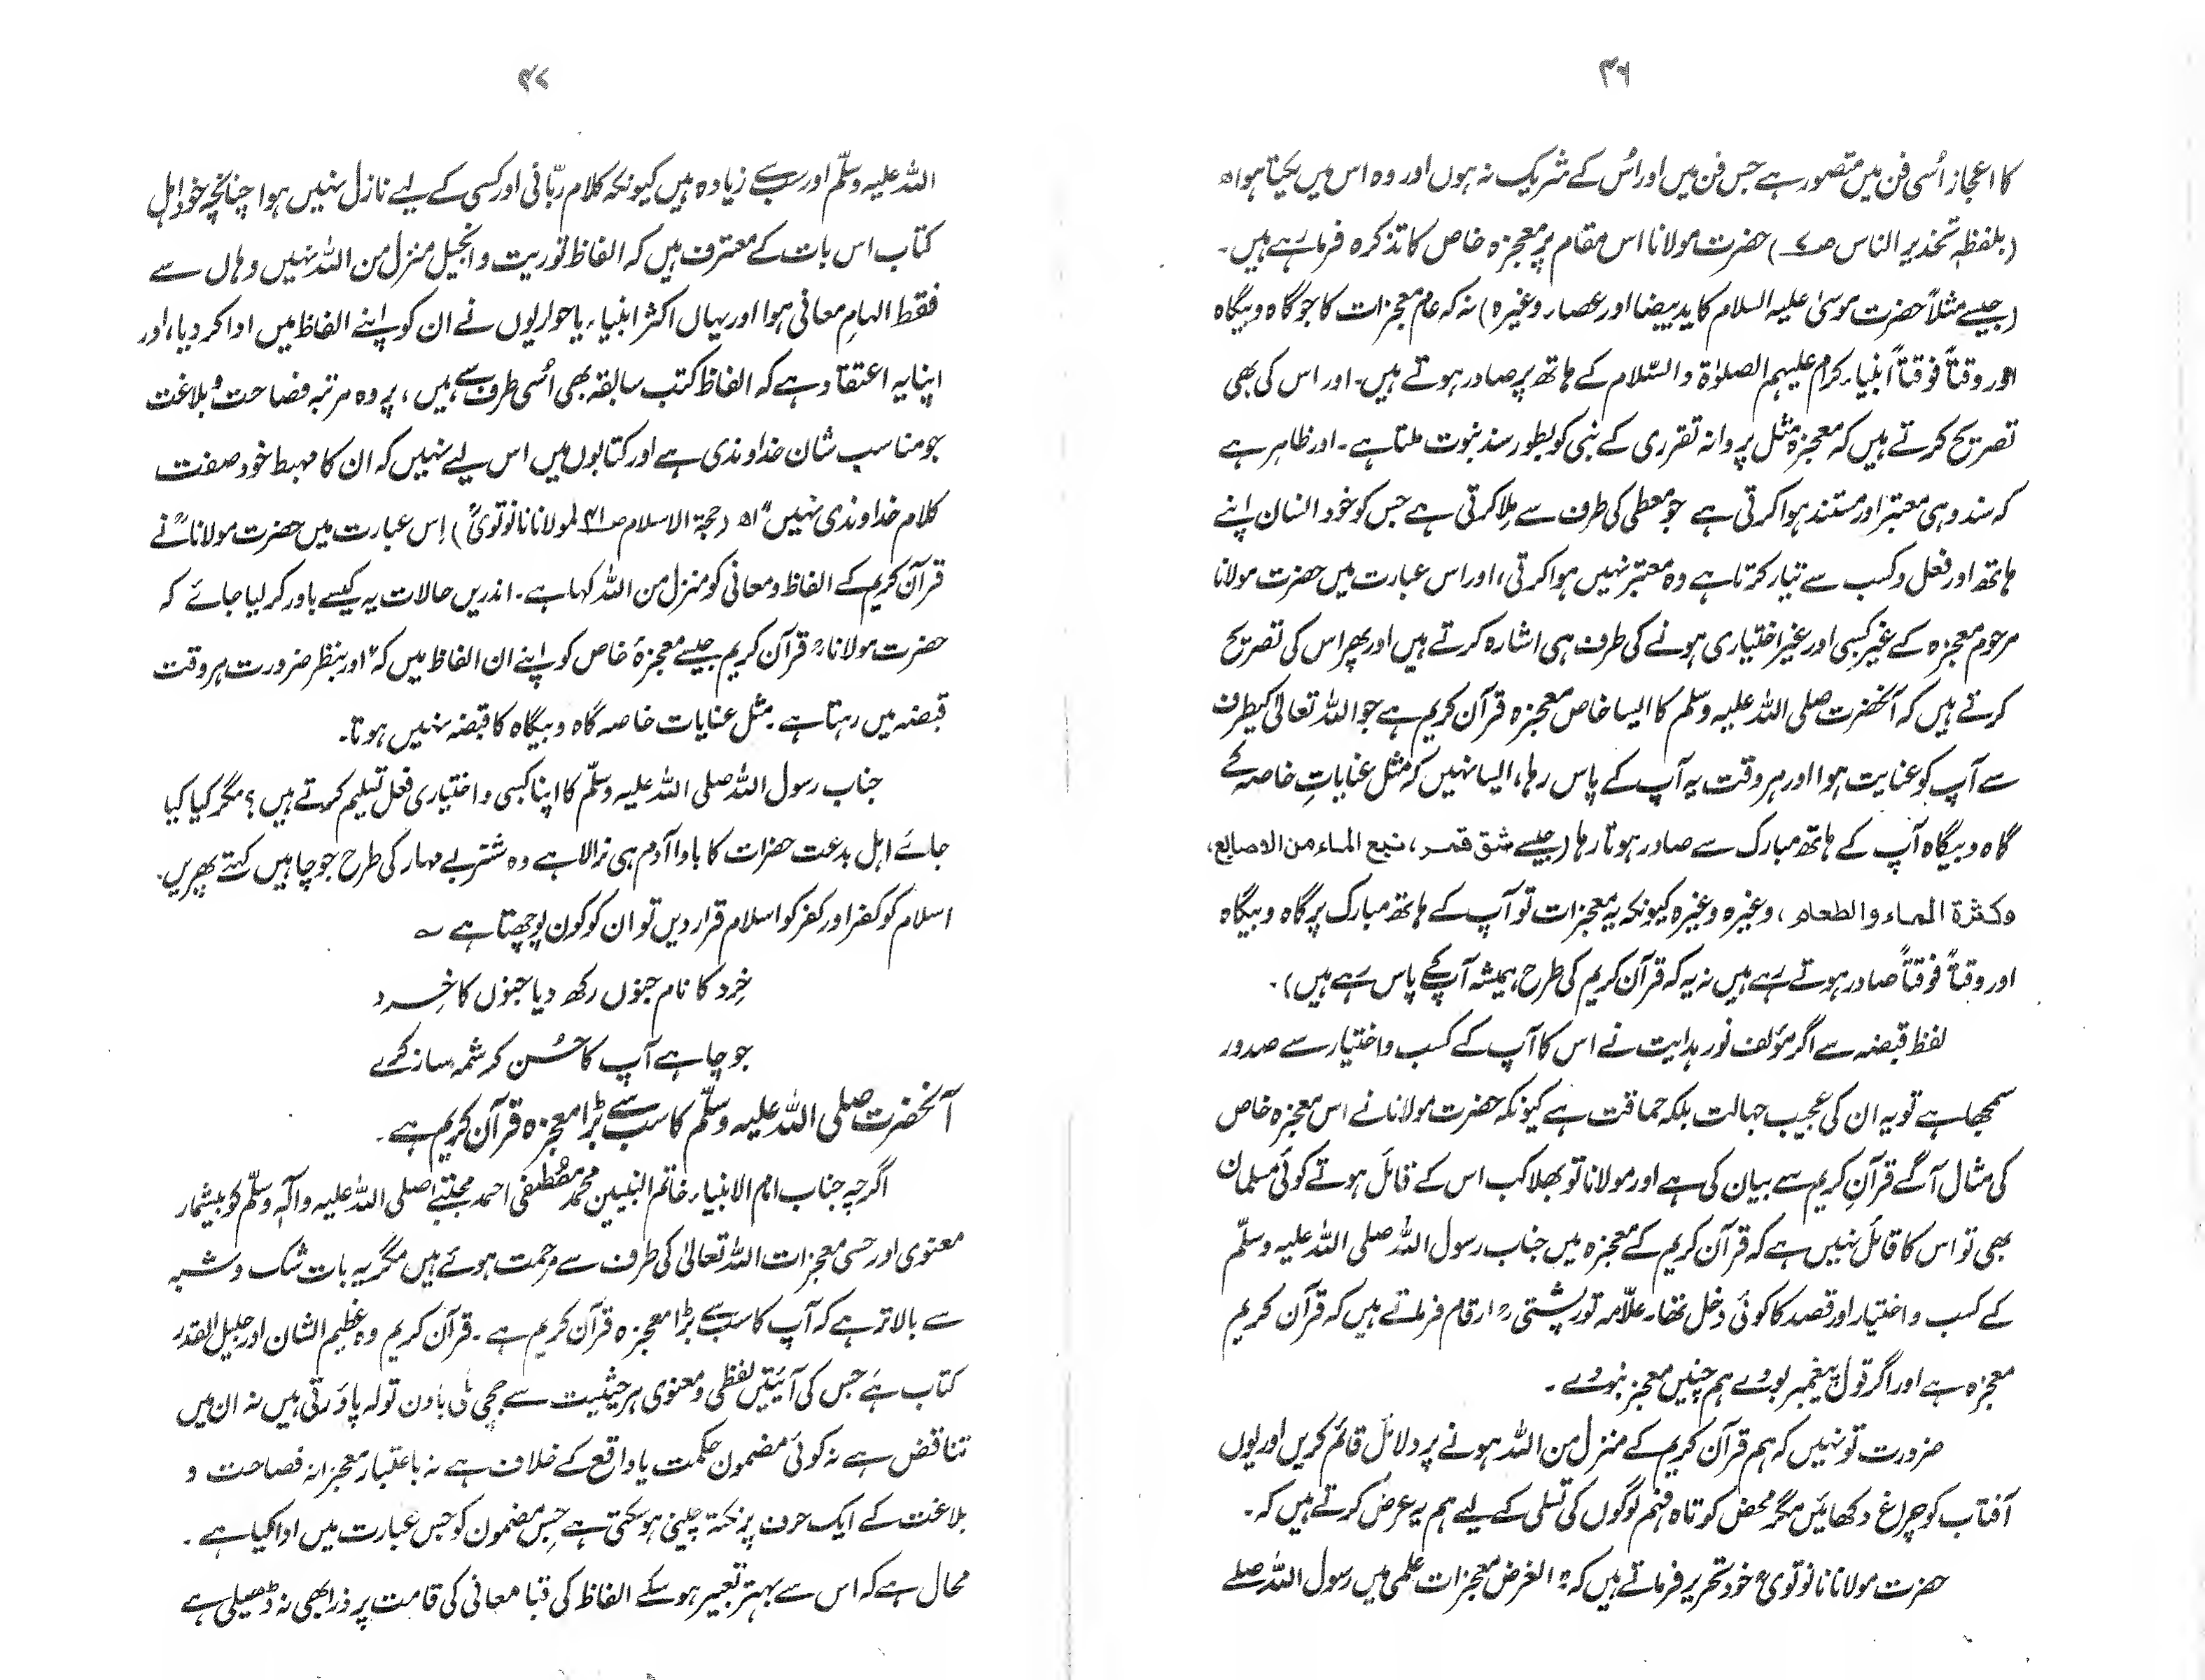 ۳۶
کا اعجاز اُسی فن میں متصور ہے جس فن میں اور اُس کے شریک نہ ہوں اور وہ اس میں یکتا ہو اھ
(بلفظہٖ تحذیر الناس صـ۷) حضرت مولانا اس مقام پر معجزہ خاص کا تذکرہ فرما رہے ہیں۔
(جیسے مثلاً حضرت موسیٰ علیہ السلام کا ید بیضا اور عصار وغیرہ) نہ کہ عام معجزات کا جو گاہ و بیگاہ
اور وقتاً فوقتاً انبیاء کرام علیہم الصلوٰۃ والسّلام کے ہاتھ پر صادر ہوتے ہیں۔ اور اس کی بھی
تصریح کرتے ہیں کہ معجزہ مثل پروانہ تقرری کے نبی کو بطور سند نبوت ملتا ہے۔ اور ظاہر ہے
کہ سند وہی معتبر اور مستند ہوا کرتی ہے جو معطی کی طرف سے مِلا کرتی ہے جس کو خود انسان اپنے
ہاتھ اور فعل و کسب سے تیار کرتا ہے وہ معتبر نہیں ہوا کرتی، اور اس عبارت میں حضرت مولانا
مرحوم معجزہ کے غیر کسبی اور غیر اختیاری ہونے کی طرف ہی اشارہ کرتے ہیں اور پھر اس کی تصریح
کرتے ہیں کہ آنحضرت صلی اللہ علیہ وسلم کا ایسا خاص معجزہ قرآن کریم ہے جو اللہ تعالیٰ کیطرف
سے آپ کو عنایت ہوا اور ہر وقت یہ آپ کے پاس رہا، ایسا نہیں کہ مثل عنایاتِ خاصہ کے
گاہ و بیگاہ آپ کے ہاتھ مبارک سے صادر ہوتا رہا (جیسے شق قمر، نبع الماء من الاصابع،
وکثرۃ الماء والطعام، وغیرہ وغیرہ کیونکہ یہ معجزات تو آپ کے ہاتھ مبارک پر گاہ و بیگاہ
اور وقتاً فوقتاً صادر ہوتے رہے ہیں نہ یہ کہ قرآن کریم کی طرح ہمیشہ آپ کے پاس رہے ہیں)۔
لفظ قبضہ سے اگر مؤلف نور ہدایت نے اس کا آپ کے کسب و اختیار سے صدور
سمجھا ہے تو یہ ان کی عجیب جہالت بلکہ حماقت ہے کیونکہ حضرت مولانا نے اس معجزہ خاص
کی مثال آگے قرآنِ کریم سے بیان کی ہے اور مولانا تو بھلا کب اس کے قائل ہوتے کوئی مسلمان
بھی تو اس کا قائل نہیں ہے کہ قرآن کریم کے معجزہ میں جناب رسول اللہ صلی اللہ علیہ وسلّم
کے کسب و اختیار اور قصد کا کوئی دخل تھا۔ علّامہ تورپشتیؒ ارقام فرماتے ہیں کہ قرآن کریم
معجزہ ہے اور اگر قول پیغمبر بودے ہم چنیں معجز نبودے۔
ضرورت تو نہیں کہ ہم قرآن کریم کے منزل من اللہ ہونے پر دلائل قائم کریں اور یوں
آفتاب کو چراغ دکھائیں مگر محض کوتاہ فہم لوگوں کی تسلی کے لیے ہم یہ عرض کرتے ہیں کہ۔
حضرت مولانا نانوتویؒ خود تحریر فرماتے ہیں کہ: الغرض معجزات علمی میں رسول اللہ صلے
۳۷
اللہ علیہ وسلّم اور سب سے زیادہ ہیں کیونکہ کلام ربّانی اور کسی کے لیے نازل نہیں ہوا چنانچہ خود اہل
کتاب اس بات کے معترف ہیں کہ الفاظ توریت و انجیل منزل من اللہ نہیں وہاں سے
فقط الہامِ معانی ہوا اور یہاں اکثر انبیاء یا حواریوں نے ان کو اپنے الفاظ میں ادا کر دیا، اور
اپنا یہ اعتقاد ہے کہ الفاظ کتب سابقہ بھی اُسی طرف سے ہیں، پر وہ مرتبہ فصاحت و بلاغت
جو مناسب شان خداوندی ہے اور کتابوں میں اس لیے نہیں کہ ان کا مہبط خود صفت
کلام خداوندی نہیں" اھ (حجۃ الاسلام صـ۴۱ لمولانا نانوتویؒ) اِس عبارت میں حضرت مولاناؒ نے
قرآن کریم کے الفاظ و معانی کو منزل من اللہ کہا ہے۔ اندریں حالات یہ کیسے باور کر لیا جائے کہ
حضرت مولاناؒ قرآن کریم جیسے معجزۂ خاص کو اپنے ان الفاظ میں کہ" اور بنظر ضرورت ہر وقت
قبضہ میں رہتا ہے۔ مثل عنایات خاصہ گاہ و بیگاہ کا قبضہ نہیں ہوتا۔
جناب رسول اللہ صلی اللہ علیہ وسلّم کا اپنا کسبی و اختیاری فعل تسلیم کرتے ہیں؟ مگر کیا کیا
جائے اہل بدعت حضرات کا باوا آدم ہی نرالا ہے وہ شتر بے مہار کی طرح جو چاہیں کہتے پھریں۔
اسلام کو کفر اور کفر کو اسلام قرار دیں تو ان کو کون پوچھتا ہے ؎
خِرد کا نام جنوں رکھ دیا جنوں کا خِرد
جو چاہے آپ کا حُسن کرشمہ ساز کرے
آنحضرت صلی اللہ علیہ وسلّم کا سب سے بڑا معجزہ قرآن کریم ہے۔
اگرچہ جناب امام الانبیاء خاتم النبیین محمد مُصطفیٰ احمد مجتبےٰ صلی اللہ علیہ واٰلہٖ وسلّم کو بیشمار
معنوی اور حسی معجزات اللہ تعالیٰ کی طرف سے مرحمت ہوئے ہیں مگر یہ بات شک و شبہ
سے بالا تر ہے کہ آپ کا سب سے بڑا معجزہ قرآن کریم ہے۔ قرآن کریم وہ عظیم الشان اور جلیل القدر
کتاب ہے جس کی آئیتیں لفظی و معنوی ہر حیثیت سے جچی تلی باون تولہ پاؤ رتی ہیں نہ ان میں
تناقض ہے نہ کوئی مضمون حکمت یا واقع کے خلاف ہے نہ باعتبار معجزانہ فصاحت و
بلاغت کے ایک حرف پر نکتہ چینی ہو سکتی ہے جس مضمون کو جس عبارت میں ادا کیا ہے۔
محال ہے کہ اس سے بہتر تعبیر ہو سکے الفاظ کی قبا معانی کی قامت پر ذرا بھی نہ ڈھیلی ہے